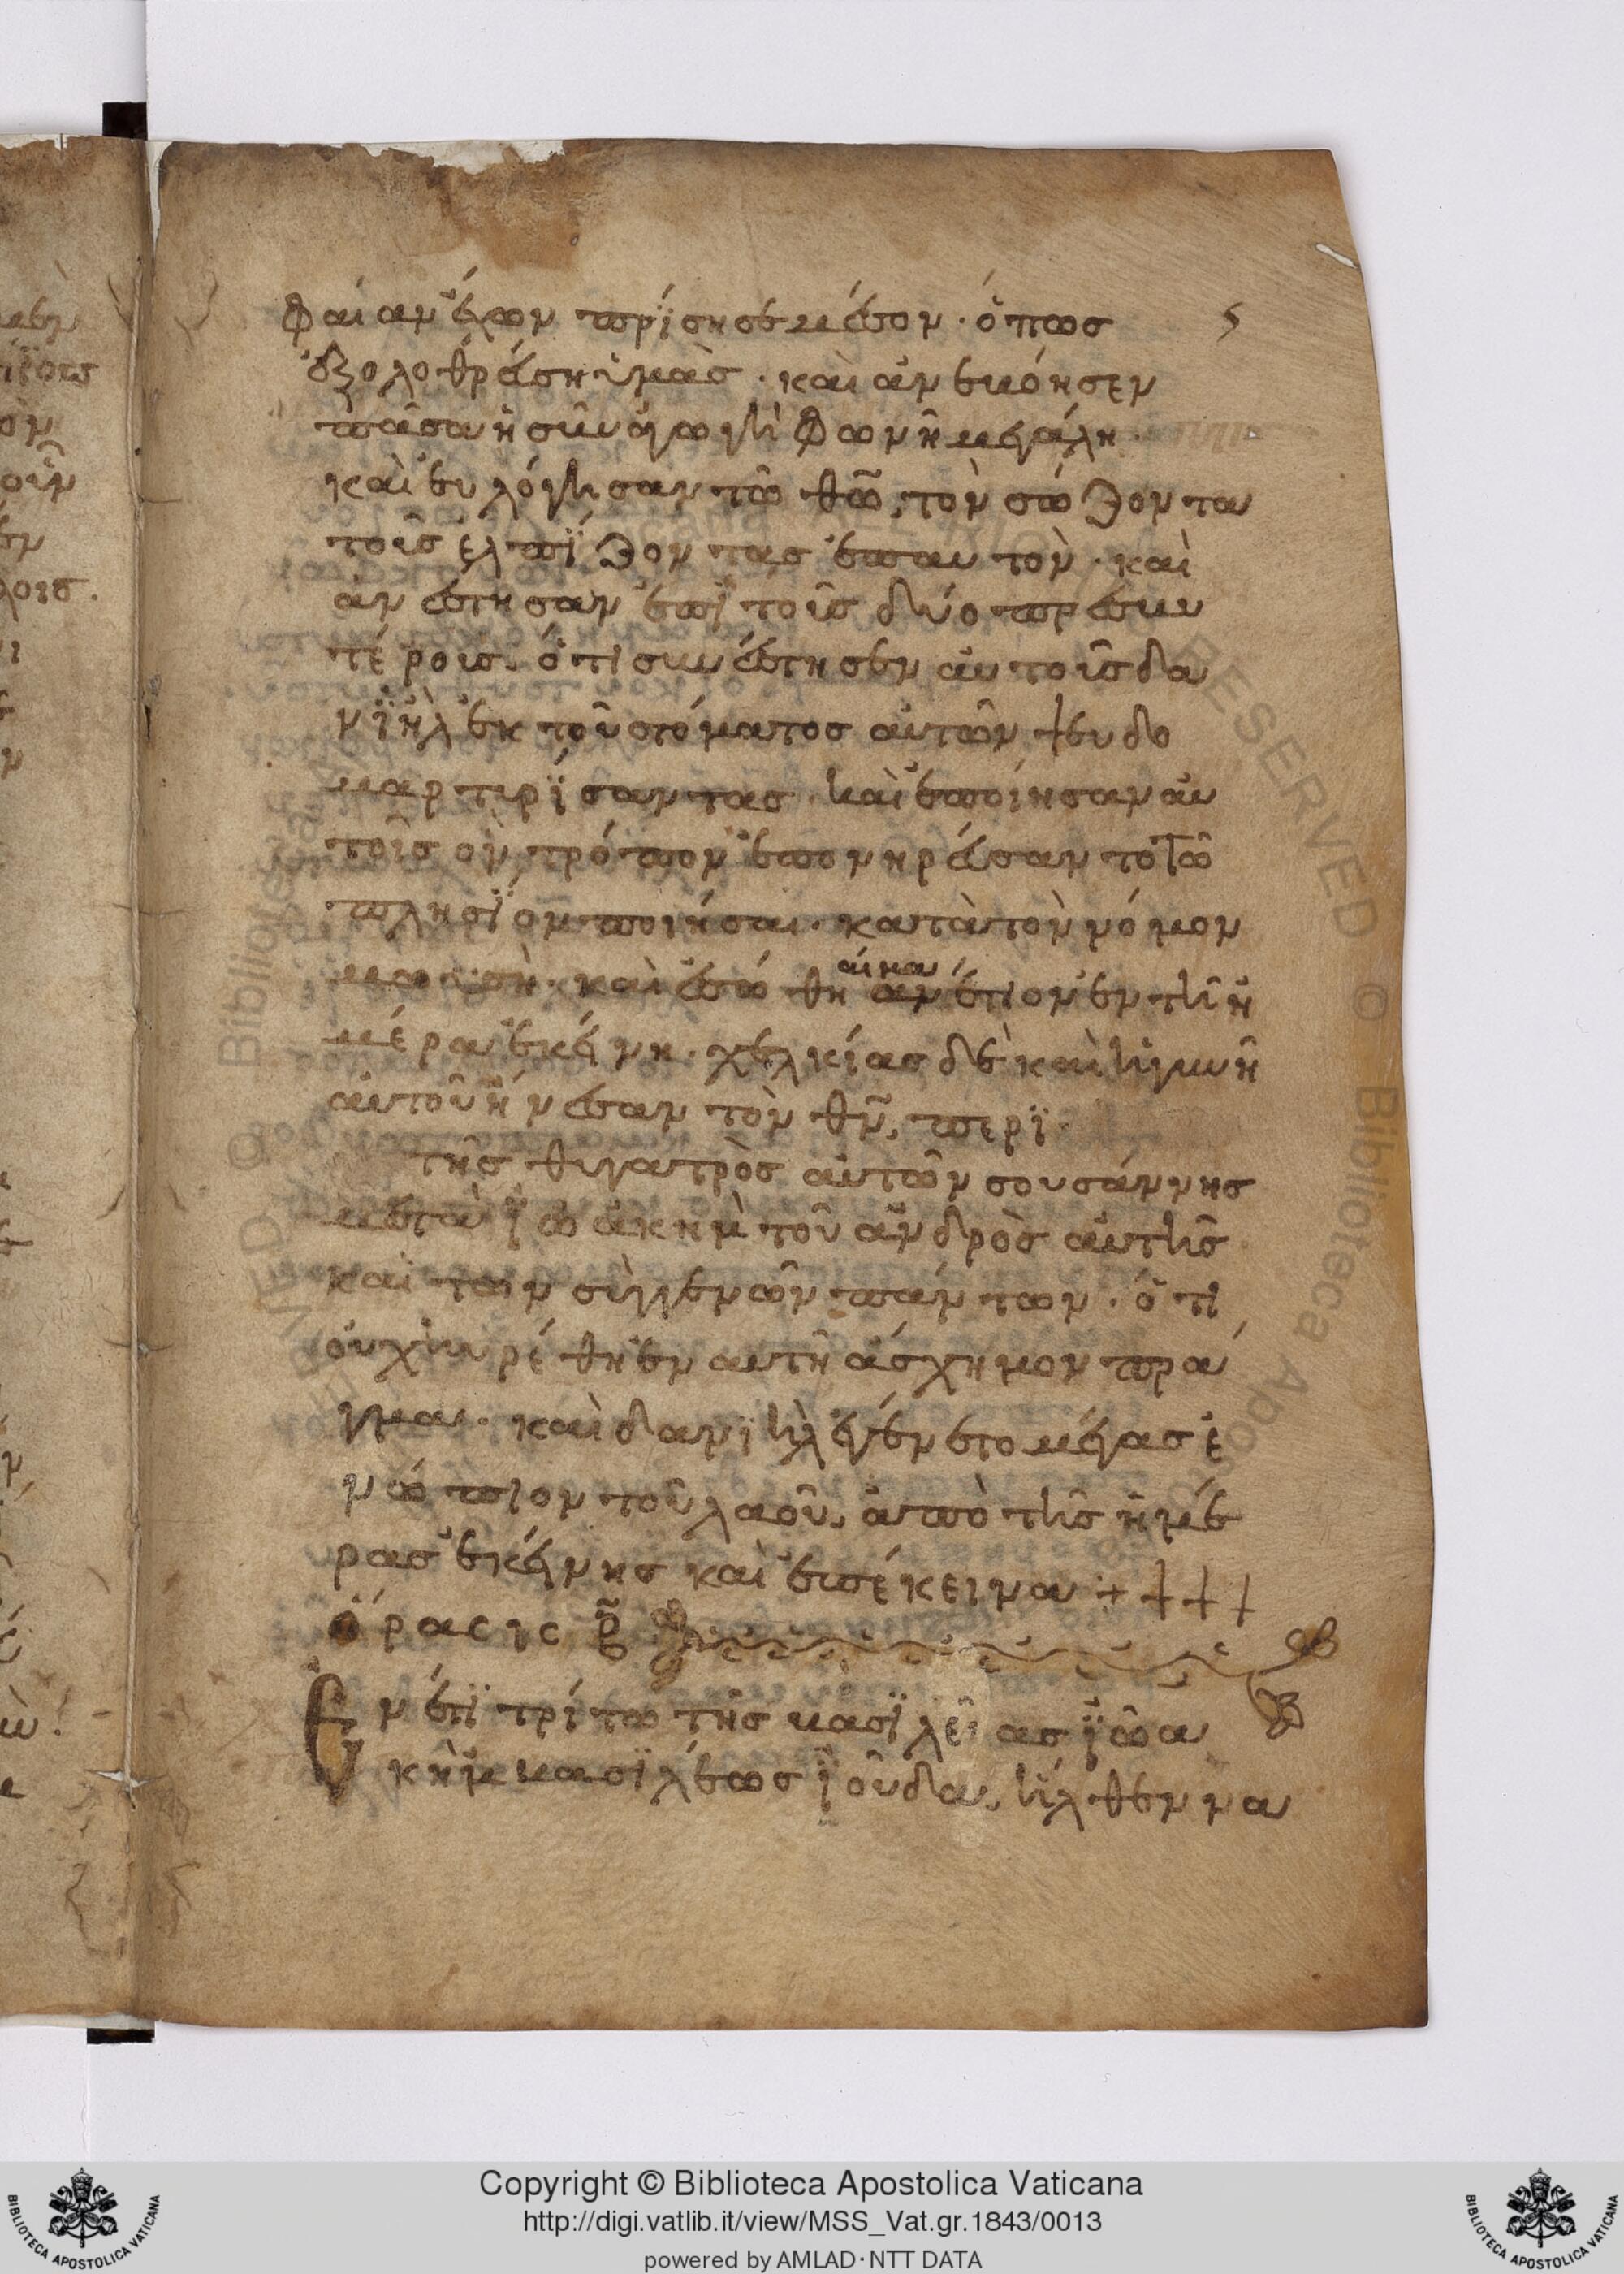 φαίαν ἔχων πρίσησε μέσον · ὅπως
ἐξολοθρεύση ὑμᾶσ · καὶ ἀνευόησεν
πᾶσα ἡ σϋναγωγὴ φωνῆ μεγάλη ·
καὶ ευλόγησαν τῶ θῶ, τὸν σώζοντα
τοὺσ ἐλπΐζοντασ ἐπαυτὸν · καὶ
ἀνέστησαν ἐπῒ τοῦσ δύο πρεσυυ
τέροισ. ὅτι συνέστησεν αὐτοῦσ δα
νϊὴλ ἐκ τοῦ στόματοσ αὐτῶν ψευδο
μαρτυρΐσαντασ · καὶ ἐποίησαν αὐ
τοῖσ ὃν τρόπον ἐπονηρεύσαντο τῶ
πλησΐον ποιῆσαι · κατὰ τὸν νόμον
μωυσῆ · καὶ ἐσώθη αἷμα ἀνέτιον ἐν τῆ ἡ
μέρα ἐκείνη · χελκίασ δὲ καὶ ἡ γυνὴ
αὐτοῦ ἤνεσαν τὸν θν, περῒ ·
τῆσ θυγατρὸσ αὐτῶν σουσάννησ
μετὰ ϊωακὴμ τοῦ ἀνδρὸσ αὐτῆσ
καὶ των συγγενῶν πάντων · ὅτι
οὐχ ηυρέθη ἐν αυτῆ άσχημον πρα
γμα · καὶ δανιὴλ ἐγένετο μέγασ ἐ
νώπιον τοῦ λαοῦ, ἀπὸ τῆσ ἡμέ
ρασ ἐκείνησ καὶ ἐπέκεινα : + + + +
ὅρασις β
Ἐν έτϊ τρίτω τῆσ υασϊλεῖασ ϊῶα
κὴμ υασϊλέωσ ϊοῦδα, ἦλθεν να
Copyright © Biblioteca Apostolica Vaticana
http://digi.vatlib.it/view/MSS_Vat.gr.1843/0013
powered by AMLAD · NTT DATA